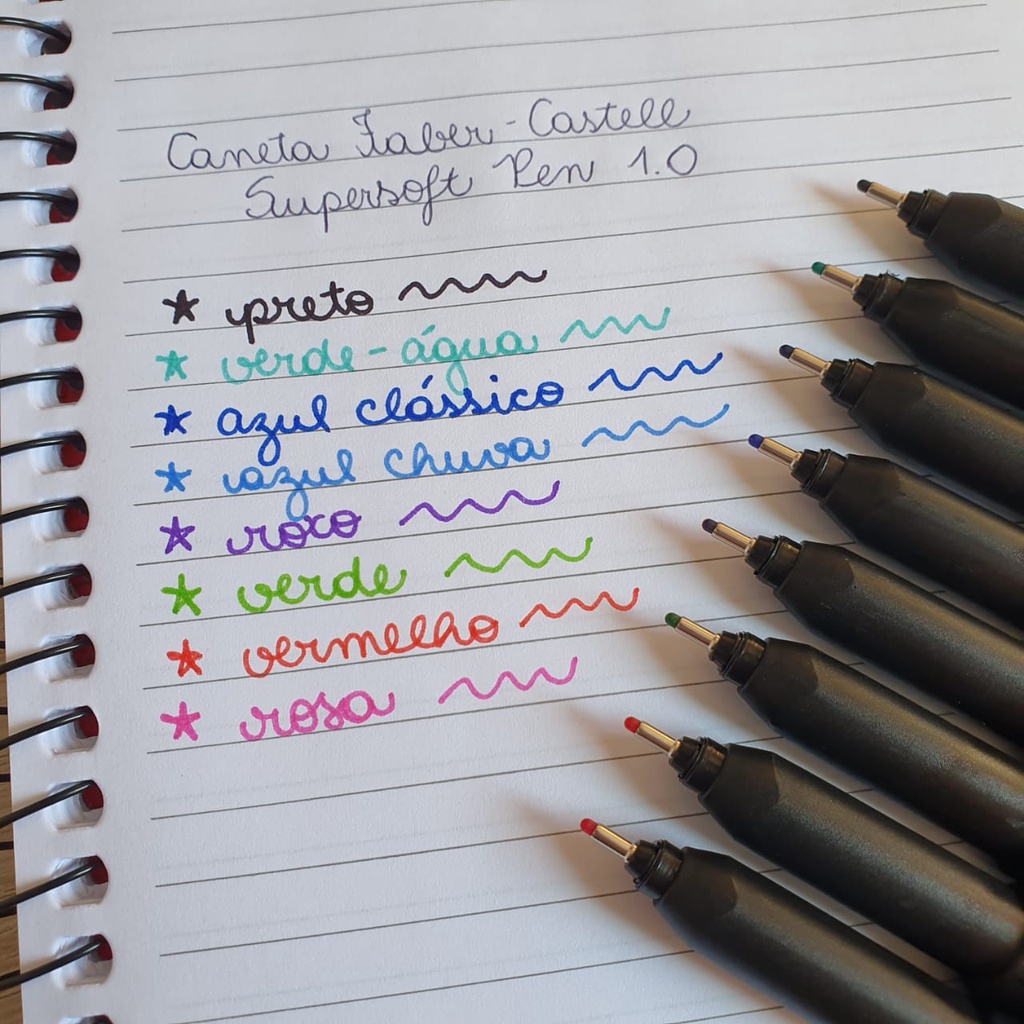 Caneta Faber-Castell
Supersoft Pen 1.0
* preto
* verde-água
* azul clássico
* azul chuva
* roxo
* verde
* vermelho
* rosa